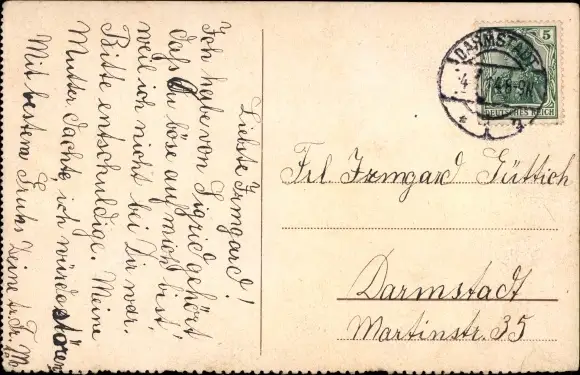 Liebste Irmgard!
Ich habe von Sigrid gehört
dass Du böse auf mich bist,
weil ich nicht bei Dir war.
Bitte entschuldige. Meine
Mutter dachte, ich würde stören
Mit bestem Gruß Deine
DARMSTADT
5
DEUTSCHES REICH
Frl. Irmgard Güttich
Darmstadt
Martinstr. 35